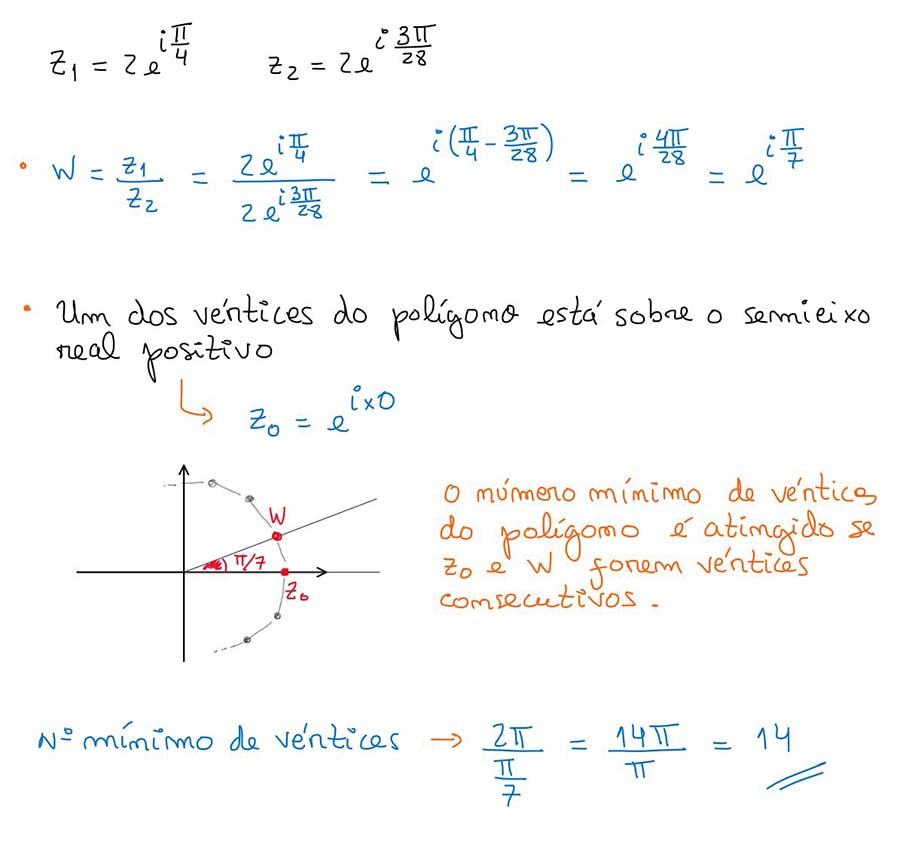 z₁ = 2e^(iπ/4)   z₂ = 2e^(i3π/28)
• W = z₁/z₂ = 2e^(iπ/4) / 2e^(i3π/28) = e^(i(π/4 − 3π/28)) = e^(i4π/28) = e^(iπ/7)
• Um dos vértices do polígono está sobre o semieixo
real positivo
z₀ = e^(i×0)
W
π/7
z₀
O número mínimo de vértices
do polígono é atingido se
z₀ e W forem vértices
consecutivos.
Nº mínimo de vértices → 2π/(π/7) = 14π/π = 14